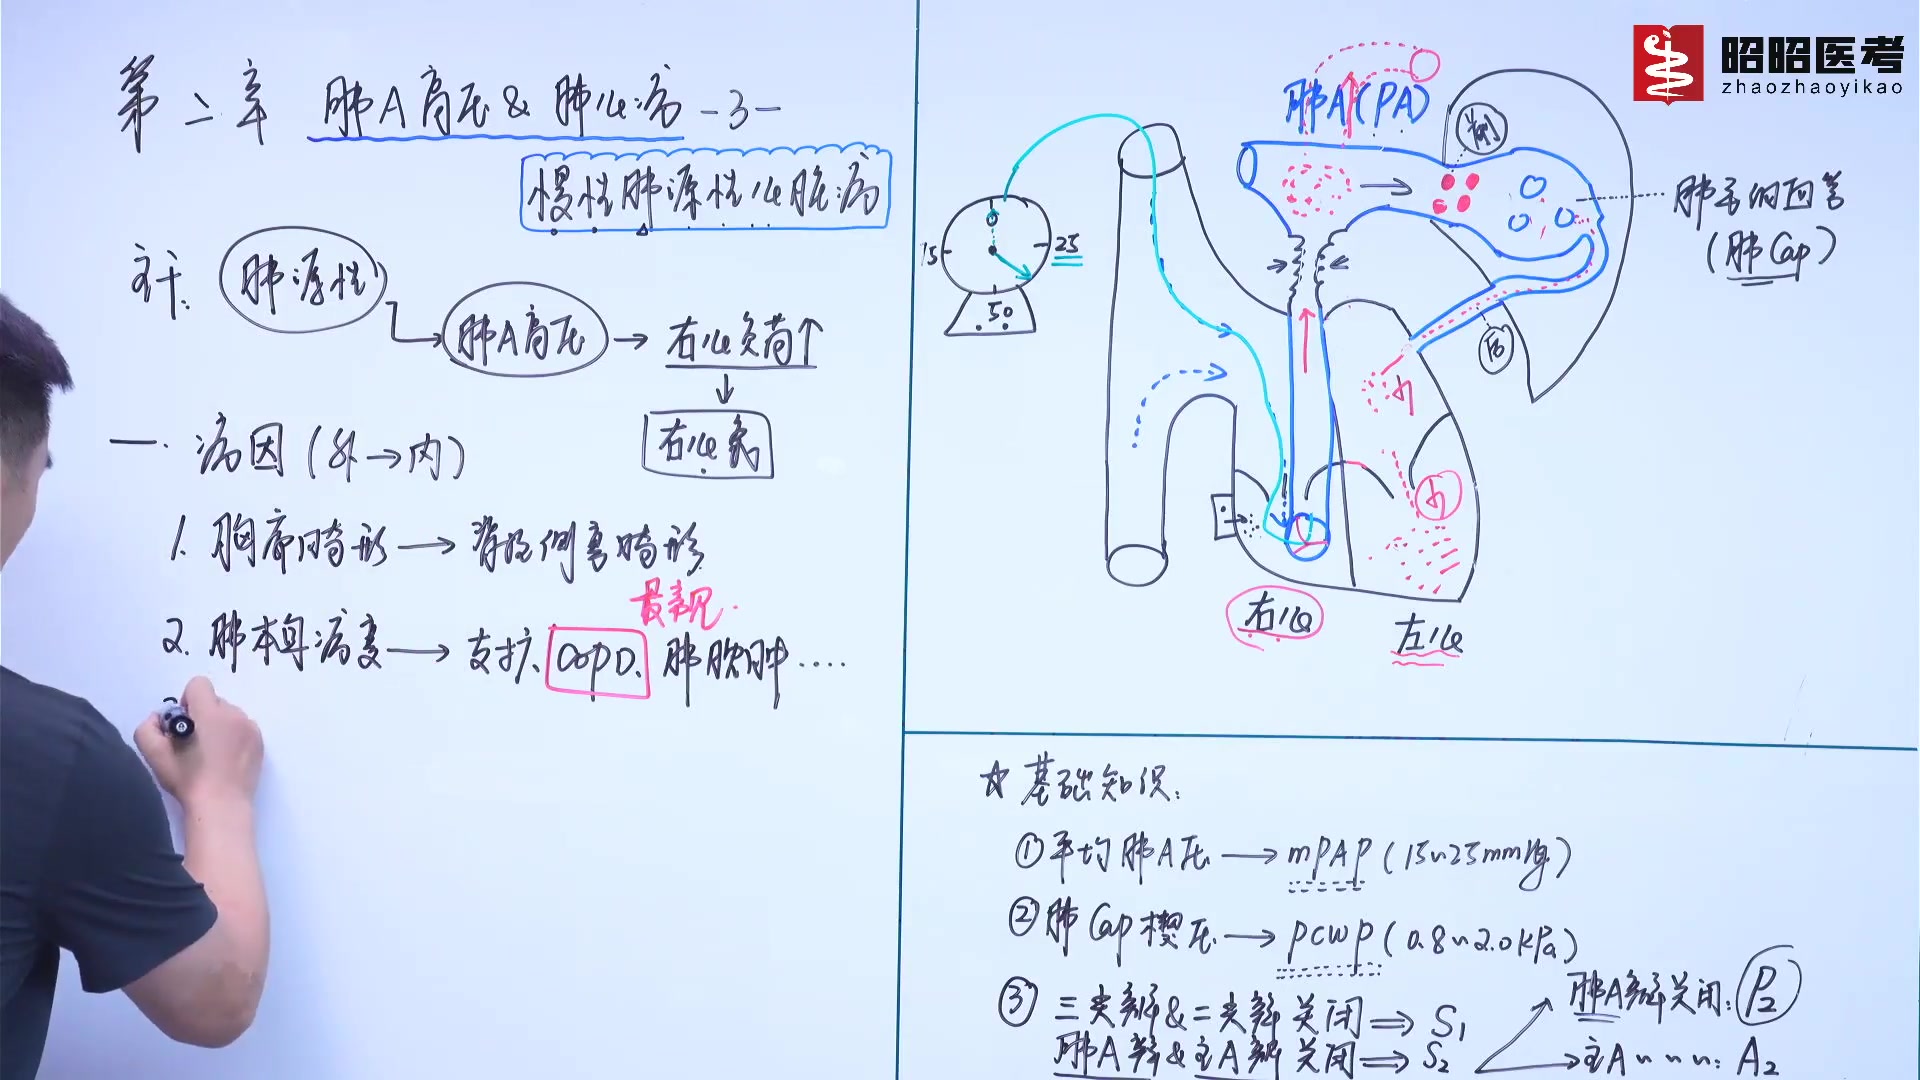 第二章 肺A高压&肺心病 -3-
慢性肺源性心脏病
主干:
肺源性
肺A高压 → 右心负荷↑
右心衰
一. 病因(外→内)
1. 胸廓畸形 → 脊柱侧弯畸形
最常见.
2. 肺本身病变 → 支扩、COPD、肺脓肿....
昭昭医考
zhaozhaoyikao
肺A(PA)
前
肺毛细血管
(肺Cap)
后
0
75
25
50
右心
左心
☆基础知识:
①平均肺A压 → mPAP (15~25mmHg)
②肺Cap楔压 → PCWP (0.8~2.0kPa)
③三尖瓣&二尖瓣关闭 ⇒ S1
肺A瓣&主A瓣关闭 ⇒ S2
肺A瓣关闭: P2
主A 〃 〃 〃: A2